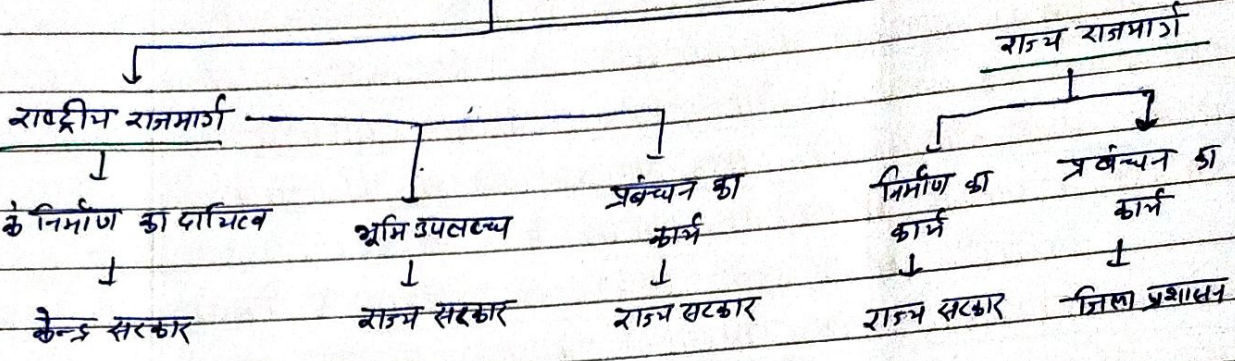 राज्य राजमार्ग
राष्ट्रीय राजमार्ग
के निर्माण का दायित्व
भूमि उपलब्ध
प्रबंधन का
कार्य
निर्माण का
कार्य
प्रबंधन का
कार्य
केन्द्र सरकार
राज्य सरकार
राज्य सरकार
राज्य सरकार
जिला प्रशासन